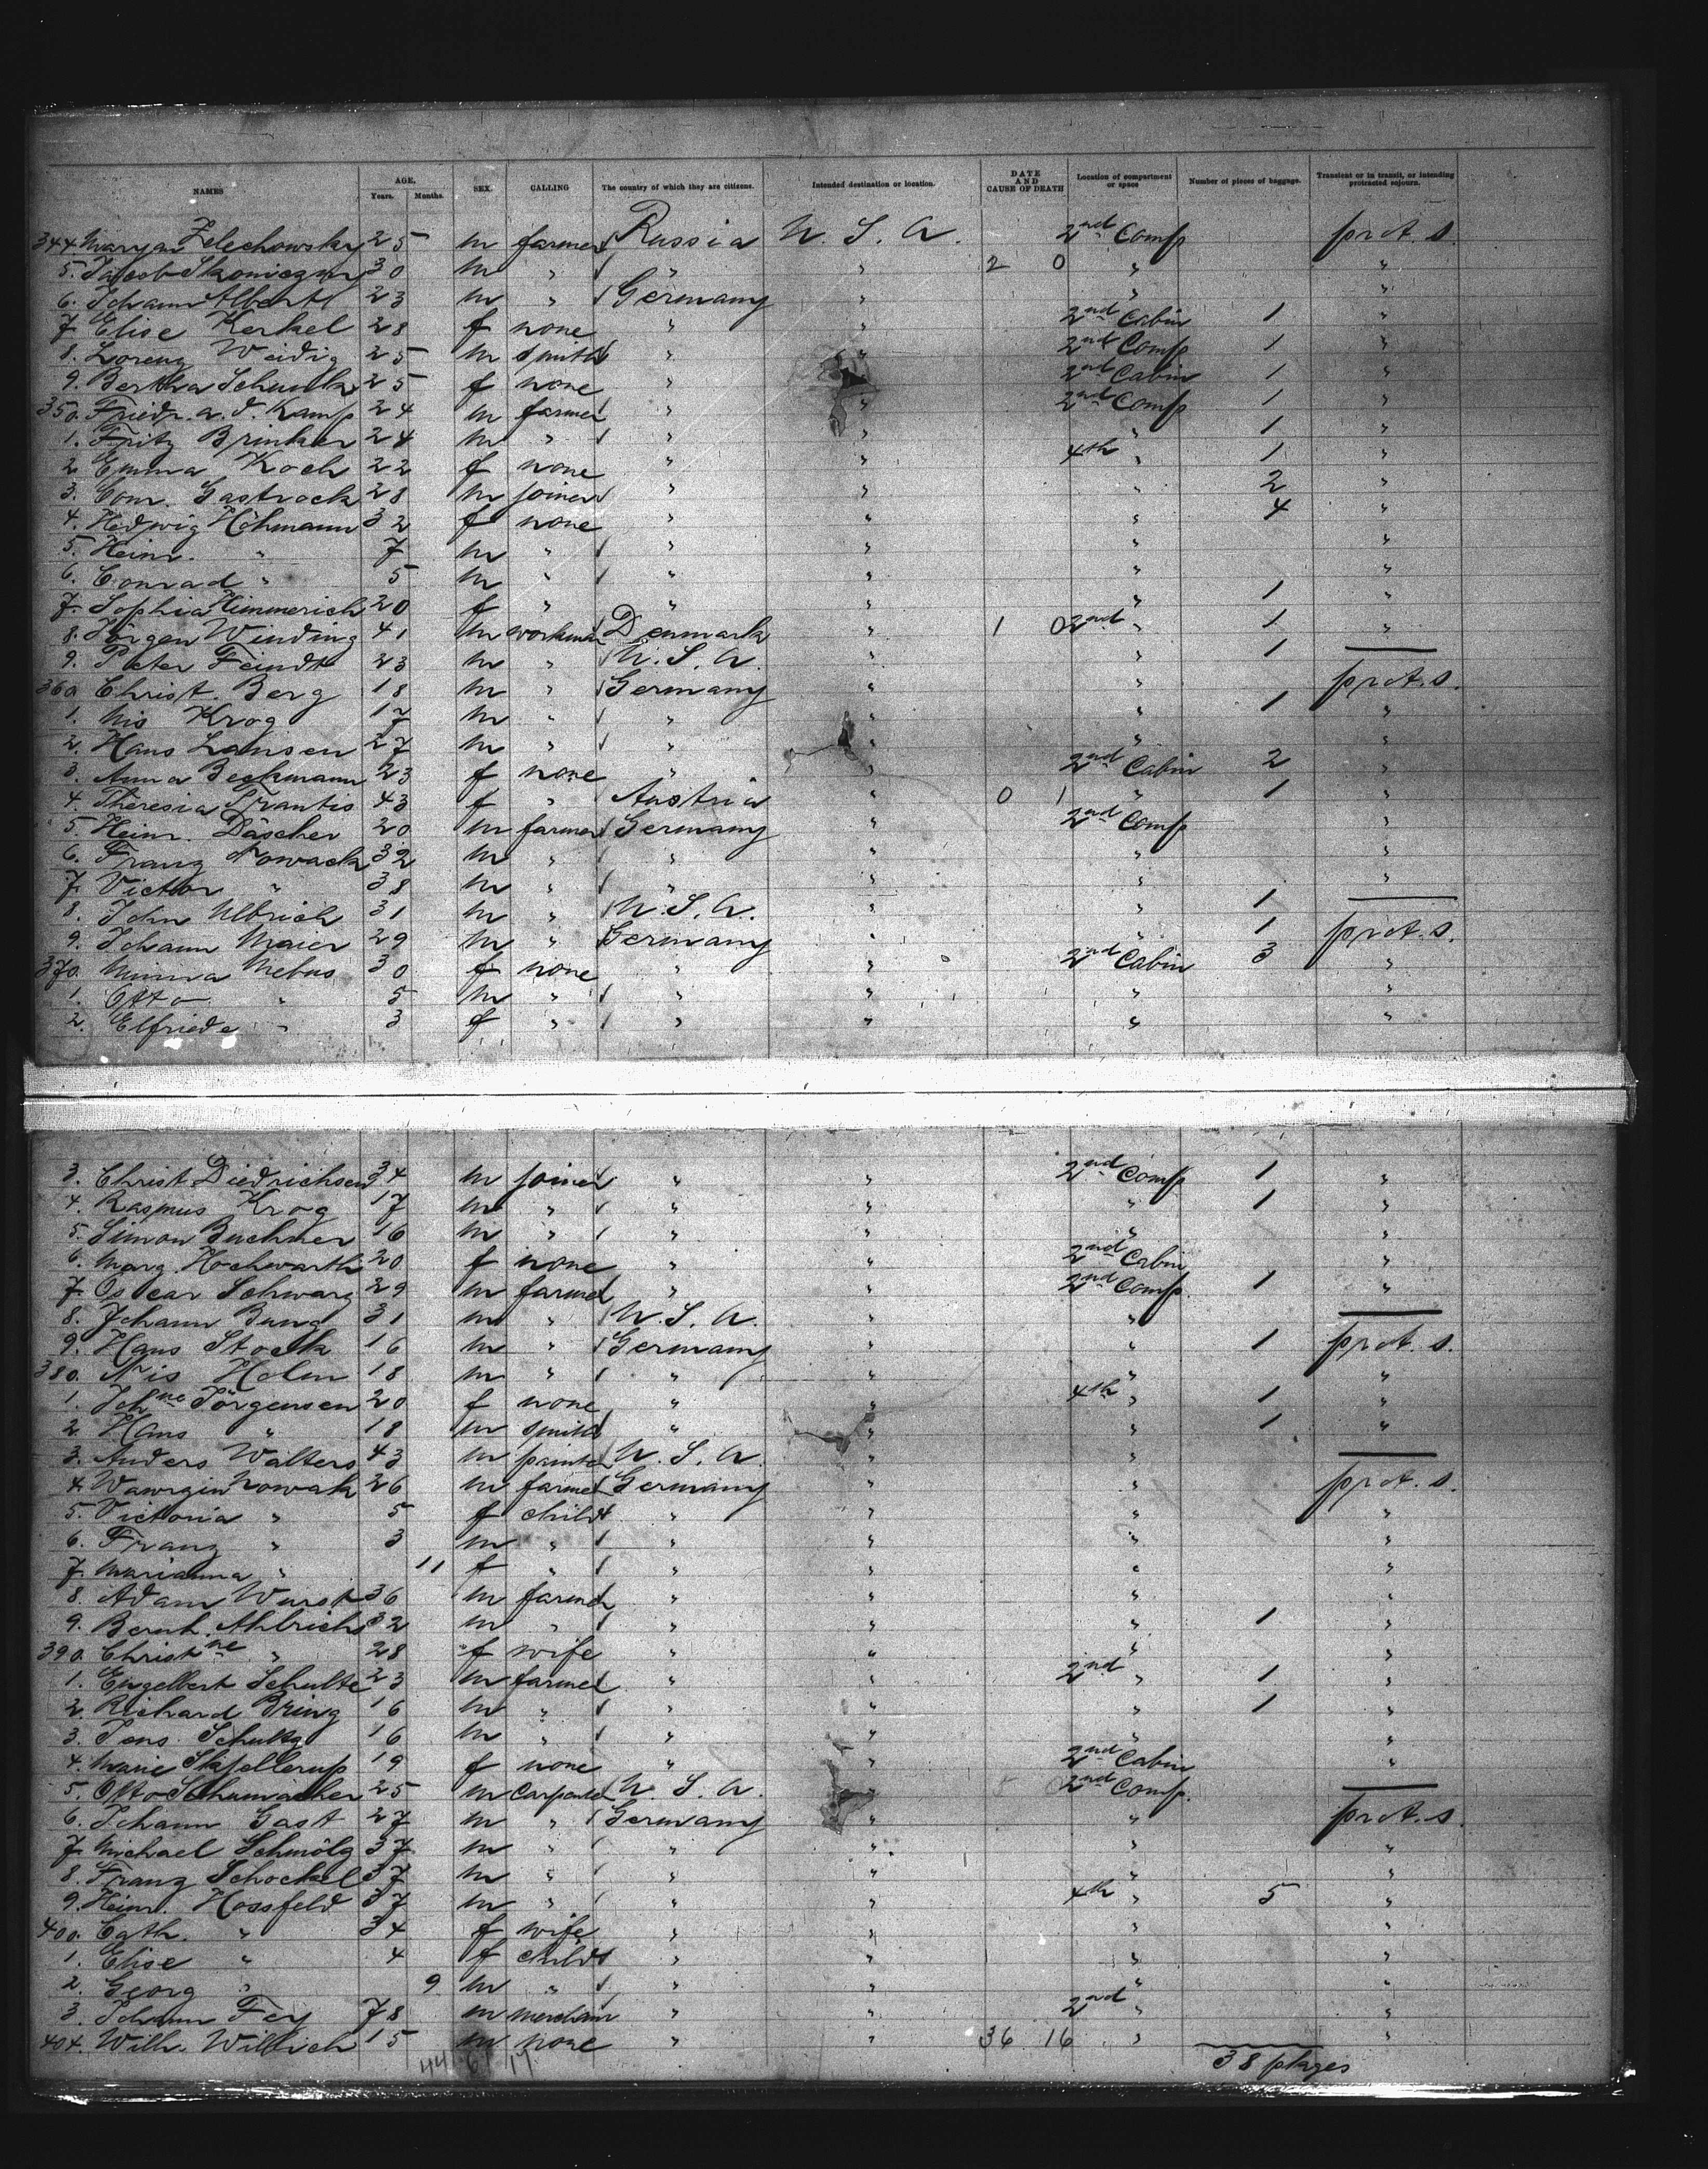 NAMES AGE. Years. Months. SEX. CALLING The country of which they are citizens. Intended destination or location. DATE AND CAUSE OF DEATH Location of compartment or space Number of pieces of baggage. Transient or in transit, or intending protracted sojourn.
344 Maryan Zelechowsky 25 m farmer Russia U. S. A. 2nd Comp prot. s.
5. Jacob 30 m " " " 2 0 " "
6. Johann Albert 23 m " Germany " " "
7. Elise Kerkel 28 f none " " 2nd Cabin 1 "
8. Lorenz Weidig 25 m smith " " 2nd Comp 1 "
9. Bertha 25 f none " " 2nd Cabin 1 "
350. Friedr. a. d. Kamp 24 m farmer " " 2nd Comp 1 "
1. Fritz Brinker 24 m " " " " 1 "
2. Emma Koch 22 f none " " 4th " 1 "
3. Conr. Gastrock 28 m joiner " " " 2 "
4. Hedwig Höhmann 32 f none " " " 4 "
5. Heinr. " 7 m " " " " "
6. Conrad " 5 m " " " " "
7. Sophia Himmerich 20 f " " " " 1 "
8. Jörgen Winding 41 m workman Denmark " 1 0 2nd " 1 "
9. Peter Feindt 23 m " U. S. A. " " 1 —
360. Christ. Berg 18 m " Germany " " prot. s.
1. Nis Krog 17 m " " " " 1 "
2. Hans Lausen 27 m " " " " "
3. Anna Beckmann 23 f none " " 2nd Cabin 2 "
4. Theresia Frantis 43 f " Austria " 0 1 " 1 "
5. Heinr. Däscher 20 m farmer Germany " 2nd Comp "
6. Franz Nowack 32 m " " " " "
7. Victor " 38 m " " " " "
8. John Ulbrich 31 m " U. S. A. " " 1 —
9. Johann Maier 29 m " Germany " " 1 prot. s.
370. Minna Mebus 30 f none " " 2nd Cabin 3 "
1. Otto " 5 m " " " " "
2. Elfriede " 3 f " " " " "
3. Christ. Diedrichsen 34 m joiner " " 2nd Comp 1 "
4. Rasmus Krog 17 m " " " " 1 "
5. Simon Buchner 16 m " " " " "
6. Marg. Hochwarth 20 f none " " 2nd Cabin "
7. Oscar Schwarz 29 m farmer " " 2nd Comp. 1 "
8. Johann Bung 31 m " U. S. A. " " —
9. Hans Stock 16 m " Germany " " 1 prot. s.
380. Nis Holm 18 m " " " " "
1. Johne Jörgensen 20 f none " " 4th " 1 "
2. Hans " 18 m smith " " " 1 "
3. Anders Walters 43 m painter U. S. A. " " —
4. Wawrzin Nowak 26 m farmer Germany " " prot. s.
5. Victoria " 5 f child " " " "
6. Franz " 3 m " " " " "
7. Marianna " 11 f " " " " "
8. Adam Wurst 36 m farmer " " " "
9. Bernh. Ahlrichs 32 m " " " " 1 "
390. Christne " 28 f wife " " " "
1. Engelbert Schulte 23 m farmer " " 2nd " 1 "
2. Richard Pring 16 m " " " " 1 "
3. Jens Schultz 16 m " " " " "
4. Marie 19 f none " " 2nd Cabin "
5. Otto Schumacher 25 m Carpenter U. S. A. " 2nd Comp. —
6. Johann Gast 27 m " Germany " " prot. s.
7. Michael Schmölz 37 m " " " " "
8. Franz Schockel 37 m " " " " "
9. Heinr. Hossfeld 37 m " " " 4th " 5 "
400. Cath. " 34 f wife " " " "
1. Elise " 4 f child " " " "
2. Georg " 9 m " " " " "
3. Johann Fey 78 m merchant " " 2nd " "
404. Wilh. Willich 15 m none " " 36 16 " "
44 61 17 38 pkges